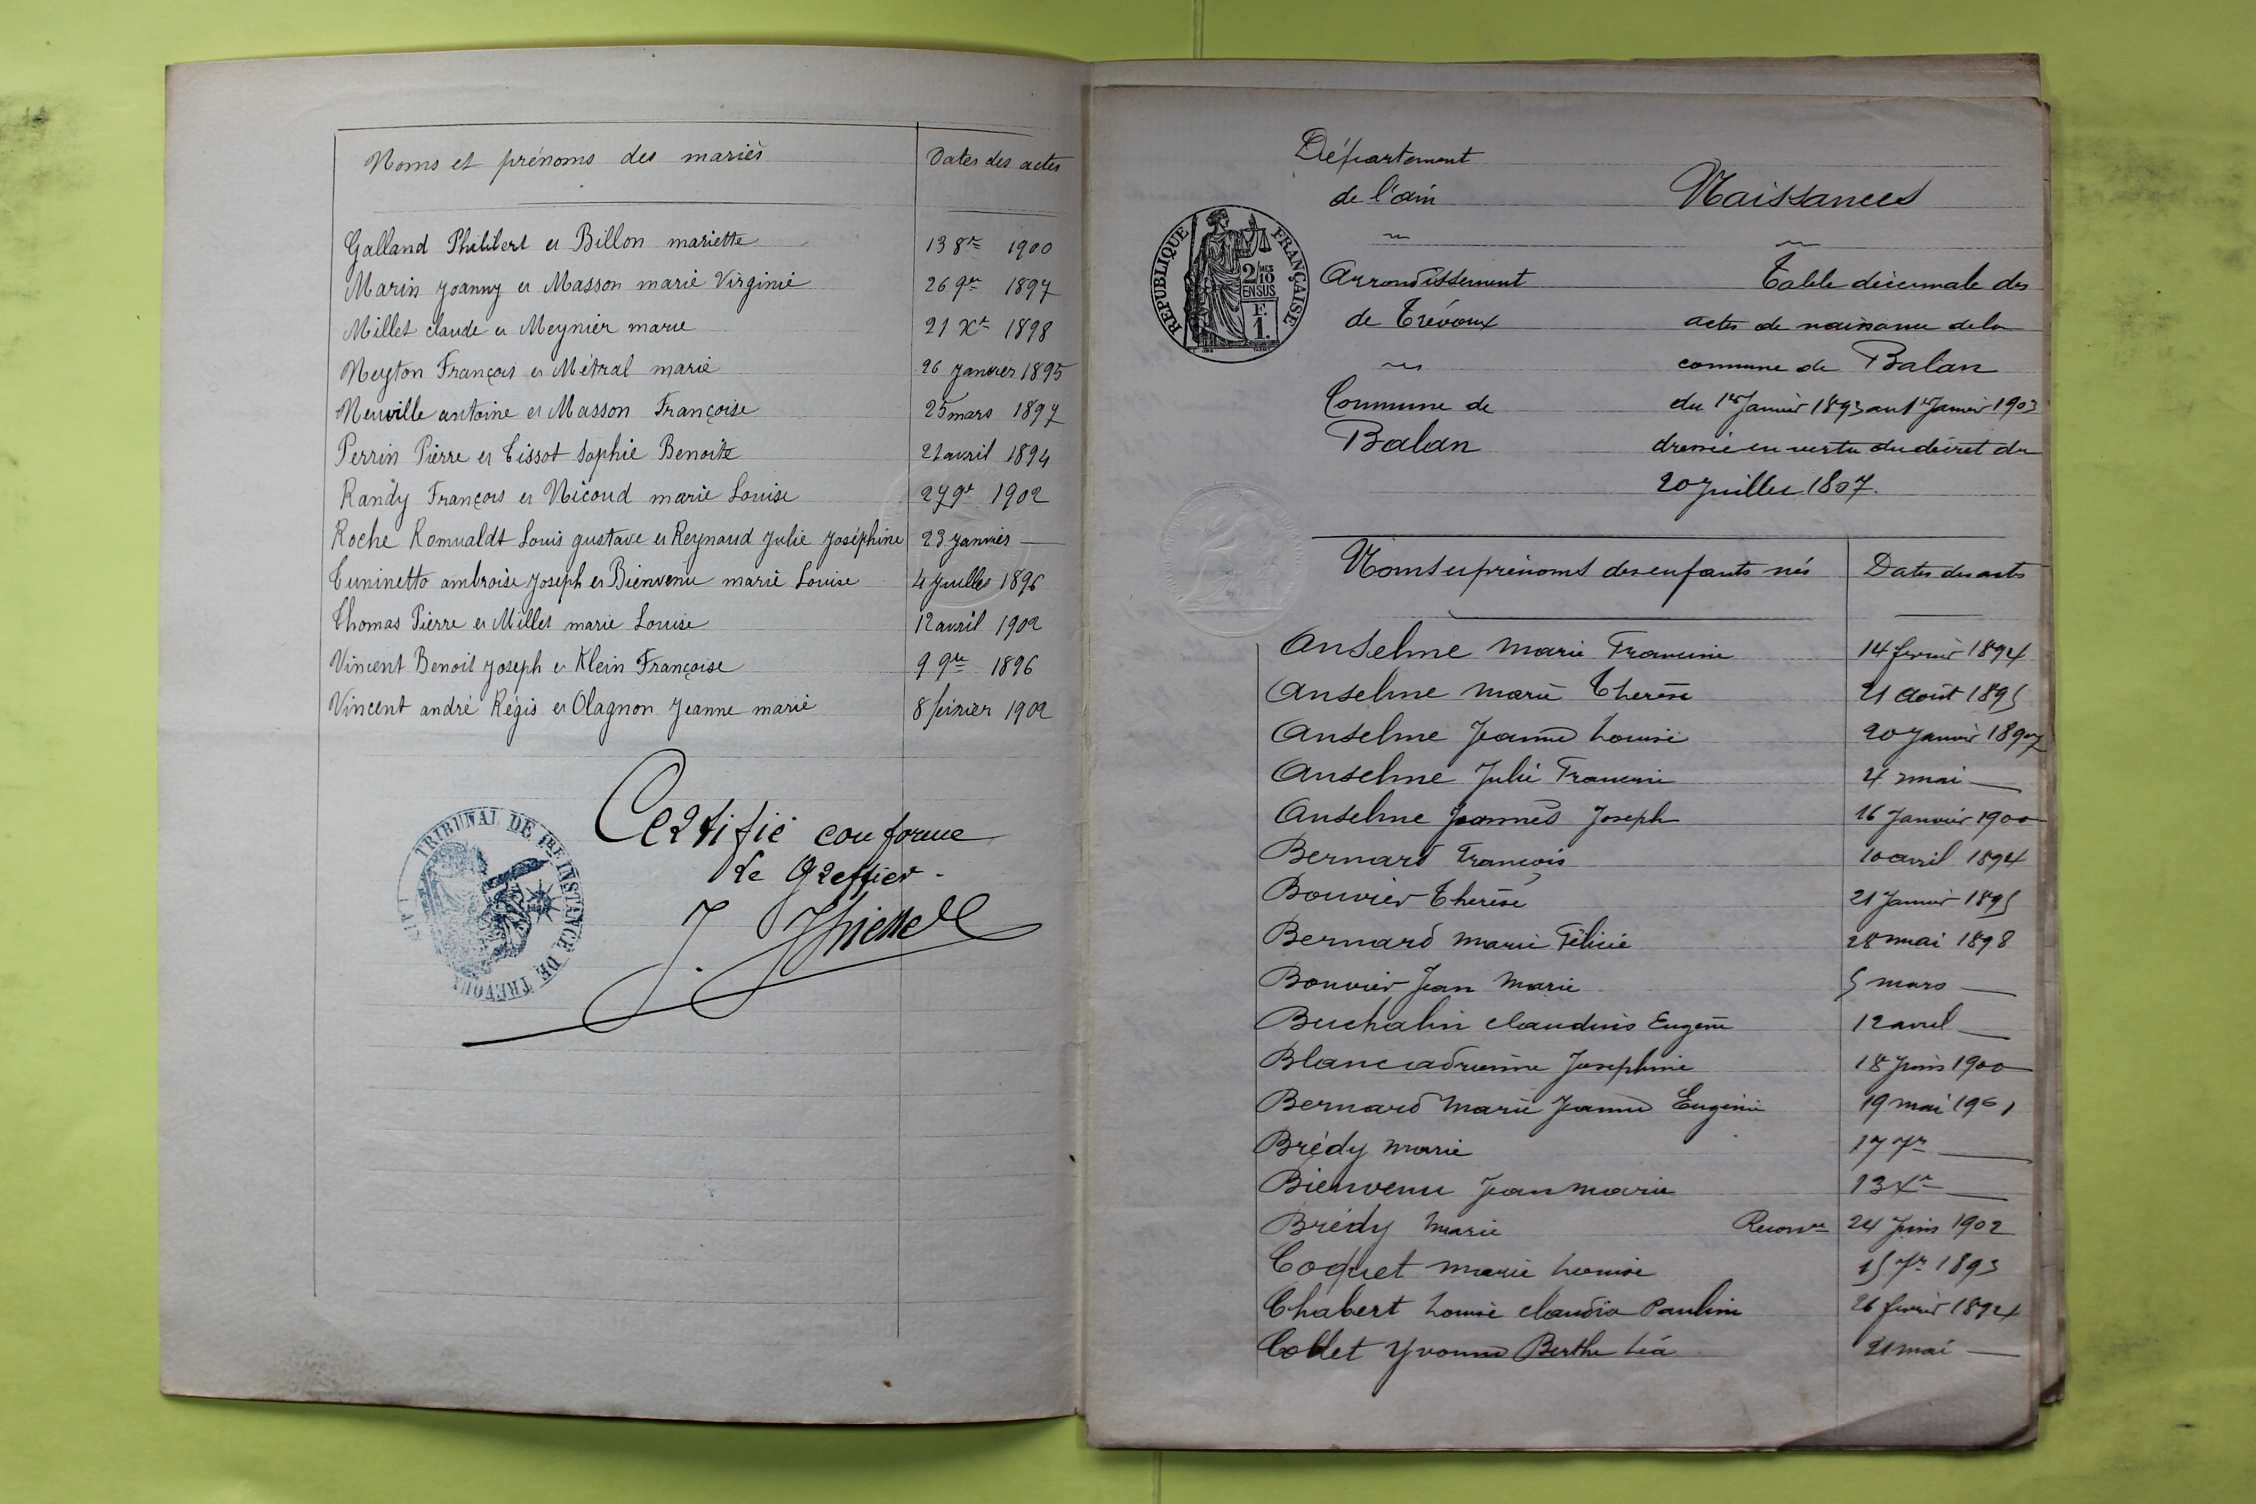 Noms et prénoms des mariés Dates des actes
Galland Philibert et Billon mariette 13 8re 1900
Marin joanny et Masson marie Virginie 26 9re 1897
Millet claude et Meynier marie 21 Xre 1898
Neyton François et Métral marie 26 janvier 1895
Neuville antoine et Masson Françoise 25 mars 1897
Perrin Pierre et Tissot Sophie Benoite 21 avril 1894
Randy François et Nicoud marie Louise 27 9re 1902
Roche Romualdt Louis gustave et Reynaud Julie Joséphine 23 janvier —
Cuninetto ambroise Joseph et Bienvenu marie Louise 4 juillet 1896
Thomas Pierre et Millet marie Louise 12 avril 1902
Vincent Benoit Joseph et Klein Françoise 9 9re 1896
Vincent andré Régis et Olagnon Jeanne marie 8 février 1902
Certifié conforme
Le Greffier
J.
TRIBUNAL DE 1RE INSTANCE DE TREVOUX
Département
de l'ain
Arrondissement
de Trévoux
Commune de
Balan
REPUBLIQUE FRANÇAISE
2/10 MES
EN SUS
F.
1.
Naissances
Table décennale des
actes de naissance de la
commune de Balan
du 1er Janvier 1893 au 1er Janvier 1903
dressée en vertu du décret du
20 juillet 1807.
Noms et prénoms des enfants nés Dates des acts
Anselme Marie Francine 14 février 1894
Anselme Marie Thérèse 21 août 1895
Anselme Jeanne Louise 20 janvier 1897
Anselme Julie Francine 4 mai —
Anselme Joannès Joseph 16 Janvier 1900
Bernard François 10 avril 1894
Bouvier Thérèse 21 Janvier 1895
Bernard Marie Félicie 28 mai 1898
Bouvier Jean Marie 5 mars —
Buchalin claudius Eugène 12 avril —
Blanc adrienne Joséphine 18 Juin 1900
Bernard Marie Jeanne Eugénie 19 mai 1901
Brédy Marie 17 7re —
Bienvenu Jean Marie 13 Xre —
Brédy Marie Reconce 24 Juin 1902
Coquet Marie Louise 15 7re 1893
Chabert Louise claudia Pauline 26 février 1894
Collet Yvonne Berthe Léa 21 mai —